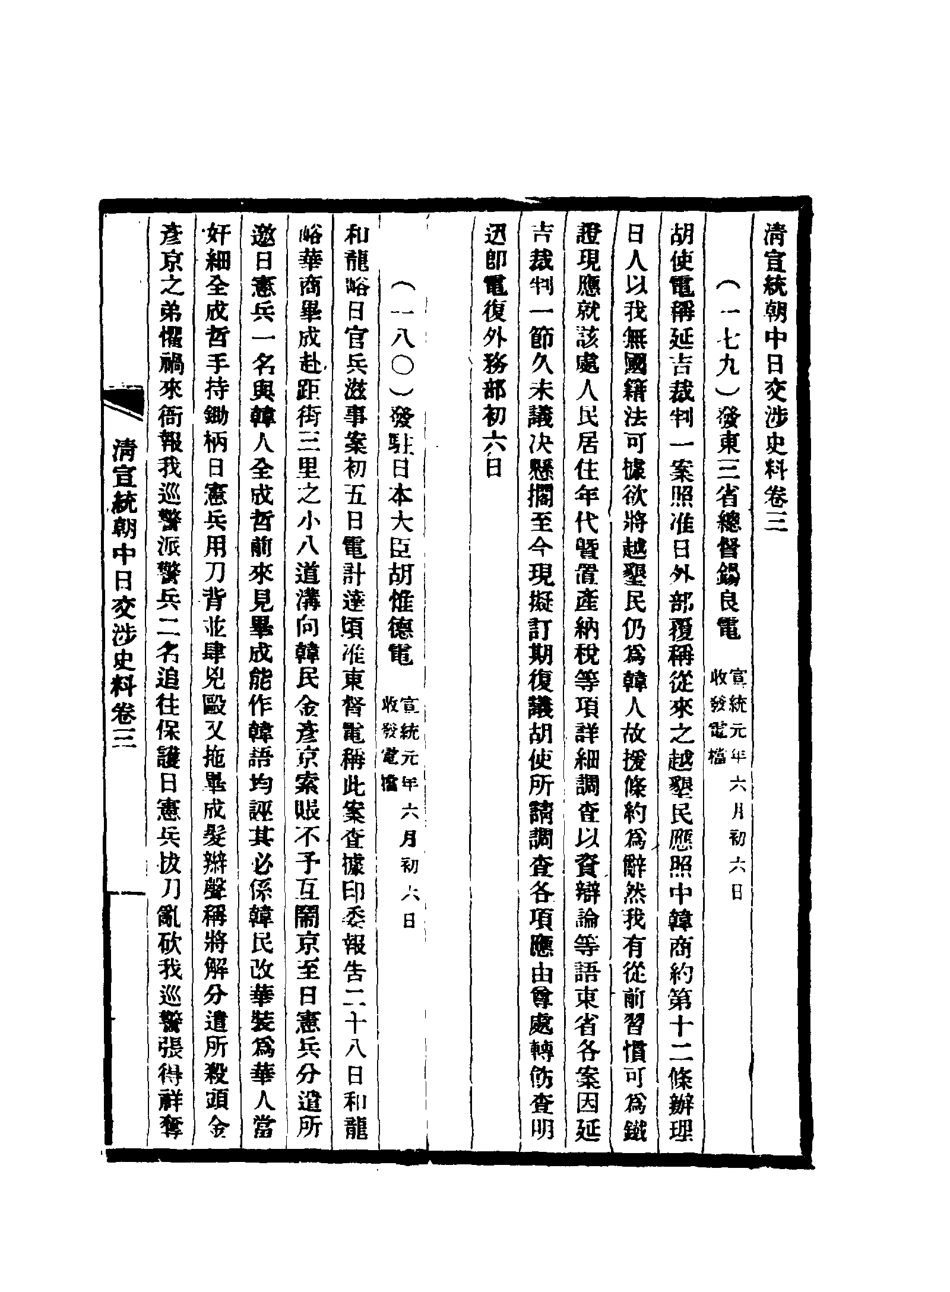 清宣統朝中日交涉史料卷三
（一七九）發東三省總督錫良電
宣統元年六月初六日
收發電檔
胡使電稱延吉裁判一案照准日外部覆稱從來之越墾民應照中韓商約第十二條辦理
日人以我無國籍法可據欲將越墾民仍爲韓人故援條約爲辭然我有從前習慣可爲鐵
證現應就該處人民居住年代暨置產納稅等項詳細調查以資辯論等語東省各案因延
吉裁判一節久未議決懸擱至今現擬訂期復議胡使所請調查各項應由尊處轉飭查明
迅卽電復外務部初六日
（一八〇）發駐日本大臣胡惟德電
宣統元年六月初六日
收發電檔
和龍峪日官兵滋事案初五日電計達頃准東督電稱此案查據印委報告二十八日和龍
峪華商畢成赴距街三里之小八道溝向韓民金彥京索賬不予互鬧京至日憲兵分遣所
邀日憲兵一名與韓人全成哲前來見畢成能作韓語均誣其必係韓民改華裝爲華人當
奸細全成哲手持鋤柄日憲兵用刀背並肆兇毆又拖畢成髮辮聲稱將解分遣所殺頭金
彥京之弟懼禍來衙報我巡警派警兵二名追往保護日憲兵拔刀亂砍我巡警張得祥奪
清宣統朝中日交涉史料卷三